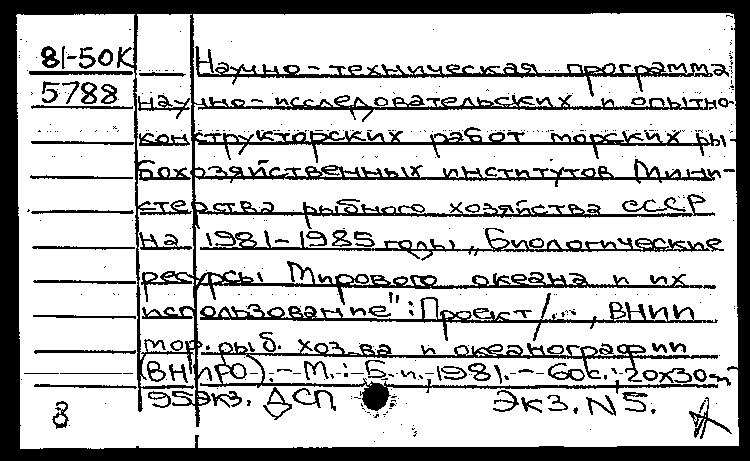 81-50К Научно-техническая программа
5788 научно-исследовательских и опытно-
конструкторских работ морских ры-
бохозяйственных институтов Мини-
стерства рыбного хозяйства СССР
на 1981-1985 годы „Биологические
ресурсы Мирового океана и их
использование": Проект/..., ВНИИ
мор. рыб. хоз-ва и океанографии
(ВНИРО). - М.: Б.и., 1981. - 60с.; 20х30см
95экз. ДСП. ЭКЗ. N5.
8